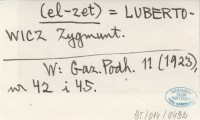 (el-zet) = LUBERTO-
WICZ Zygmunt.
W: Gaz. Podh. 11 (1923),
nr 42 i 45.